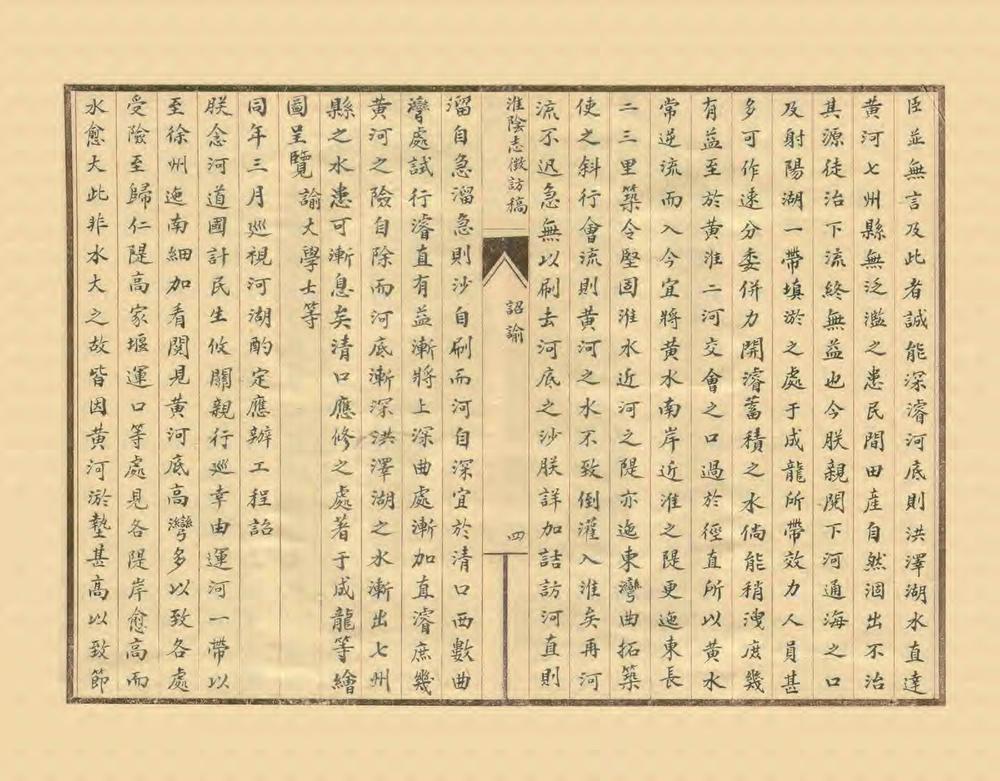 臣並無言及此者誠能深濬河底則洪澤湖水直達
黄河七州縣無泛濫之患民間田産自然涸出不治
其源徒治下流終無益也今朕親閱下河通海之口
及射陽湖一帶填淤之處于成龍所帶效力人員甚
多可作速分委併力開濬蓄積之水倘能稍洩庶幾
有益至於黄淮二河交會之口過於徑直所以黄水
常逆流而入今宜將黄水南岸近淮之隄更迤東長
二三里築令堅固淮水近河之隄亦迤東灣曲拓築
使之斜行會流則黄河之水不致倒灌入淮矣再河
流不迅急無以刷去河底之沙朕詳加詰訪河直則
淮陰志徵訪稿
詔諭
四
溜自急溜急則沙自刷而河自深宜於清口西數曲
灣處試行濬直有益漸將上深曲處漸加直濬庶幾
黄河之險自除而河底漸深洪澤湖之水漸出七州
縣之水患可漸息矣清口應修之處著于成龍等繪
圖呈覽 諭大學士等
同年三月巡視河湖酌定應辦工程詔
朕念河道國計民生攸關親行巡幸由運河一帶以
至徐州迤南細加看閱見黄河底高灣多以致各處
受險至歸仁隄高家堰運口等處見各隄岸愈高而
水愈大此非水大之故皆因黄河淤墊甚高以致節